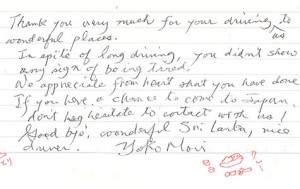 Thank you very much for your driving us to
wonderful places.
In spite of long driving, you didn't show
any sign of being tired.
We appreciate from heart what you have done
If you have a chance to come to Japan,
don't hesitate to contact with us!
Good bye, wonderful Sri Lanka, nice
driver. Yoko Mori